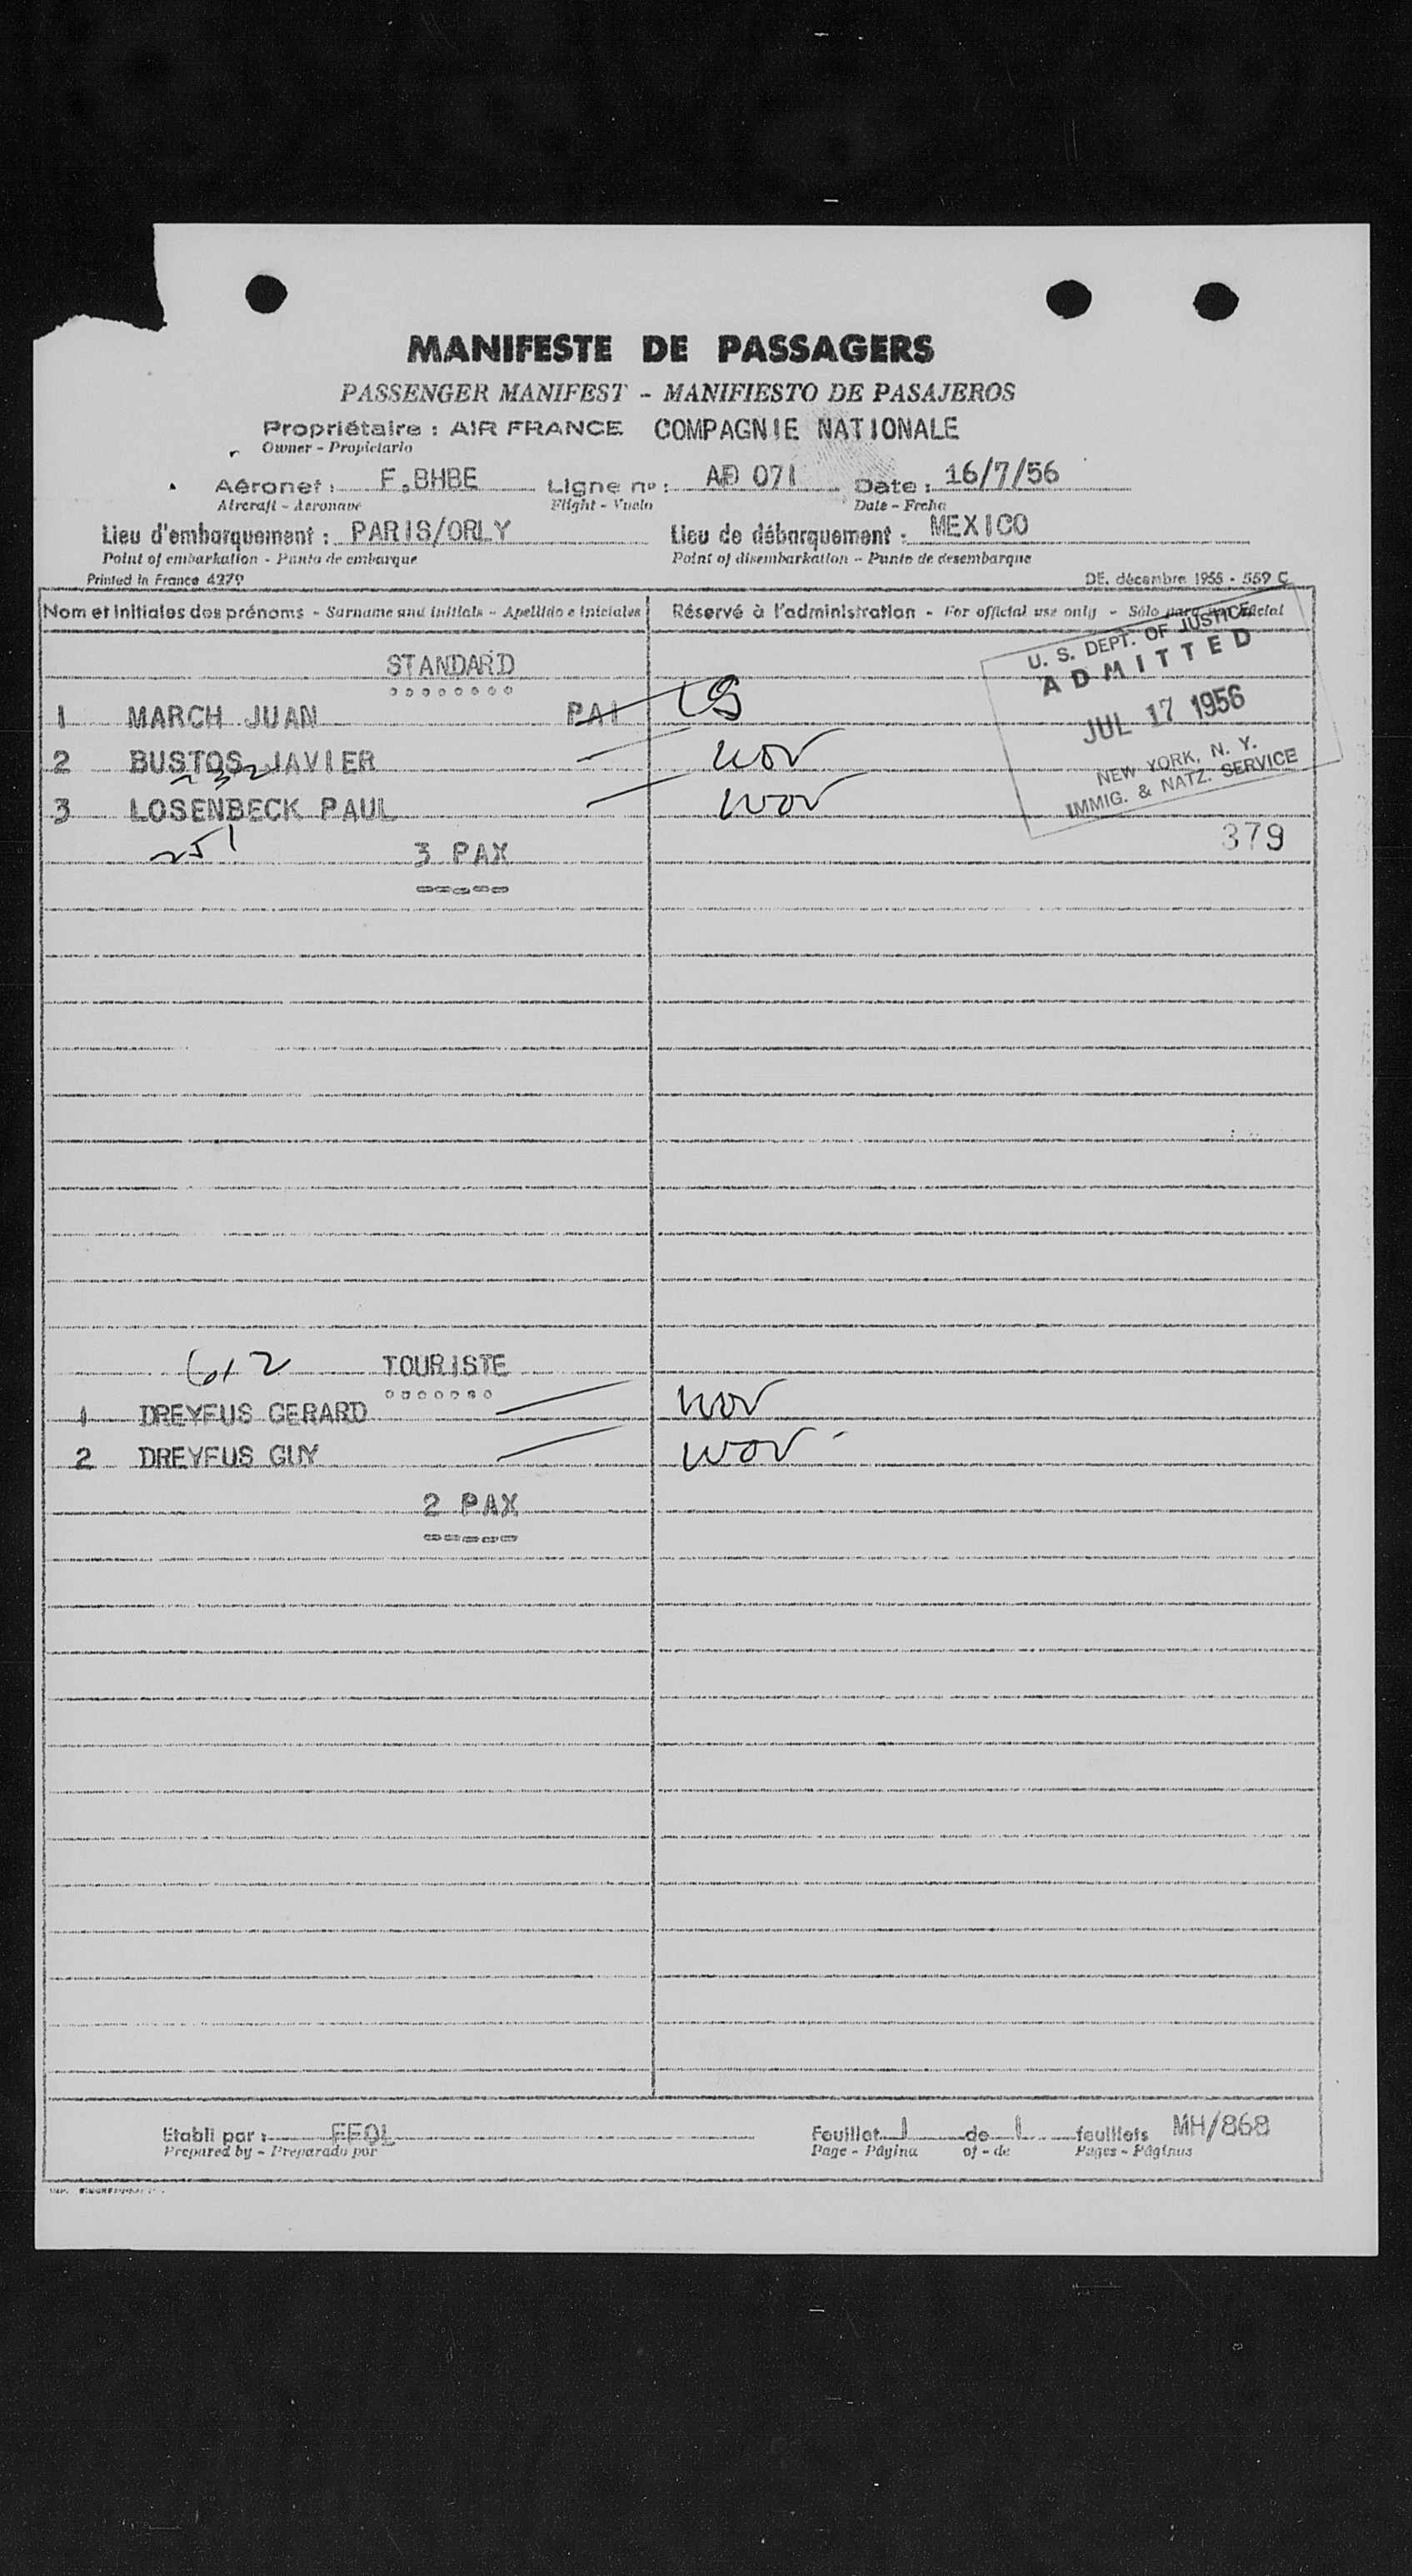 MANIFESTE DE PASSAGERS
PASSENGER MANIFEST - MANIFIESTO DE PASAJEROS
Propriétaire : AIR FRANCE COMPAGNIE NATIONALE
Owner - Propietario
Aéronef : F.BHBE Ligne no : AD 071 Date : 16/7/56
Aircraft - Aeronave Flight - Vuelo Date - Fecha
Lieu d'embarquement : PARIS/ORLY Lieu de débarquement : MEXICO
Point of embarkation - Punto de embarque Point of disembarkation - Punto de desembarque
Printed in France 4279 DE. décembre 1955 - 559 C
Nom et initiales des prénoms - Surname and initials - Apellido e iniciales Réservé à l'administration - For official use only - Sólo para uso oficial
U. S. DEPT. OF JUSTICE
ADMITTED
JUL 17 1956
NEW YORK, N. Y.
IMMIG. & NATZ. SERVICE
379
STANDARD
1 MARCH JUAN PAI
2 BUSTOS JAVIER
232
3 LOSENBECK PAUL
251
3 PAX
TOURISTE
1 DREYFUS GERARD
2 DREYFUS GUY
2 PAX
Etabli par : FFOL Feuillet 1 de 1 feuillets MH/868
Prepared by - Preparado por Page - Página of - de Pages - Páginas